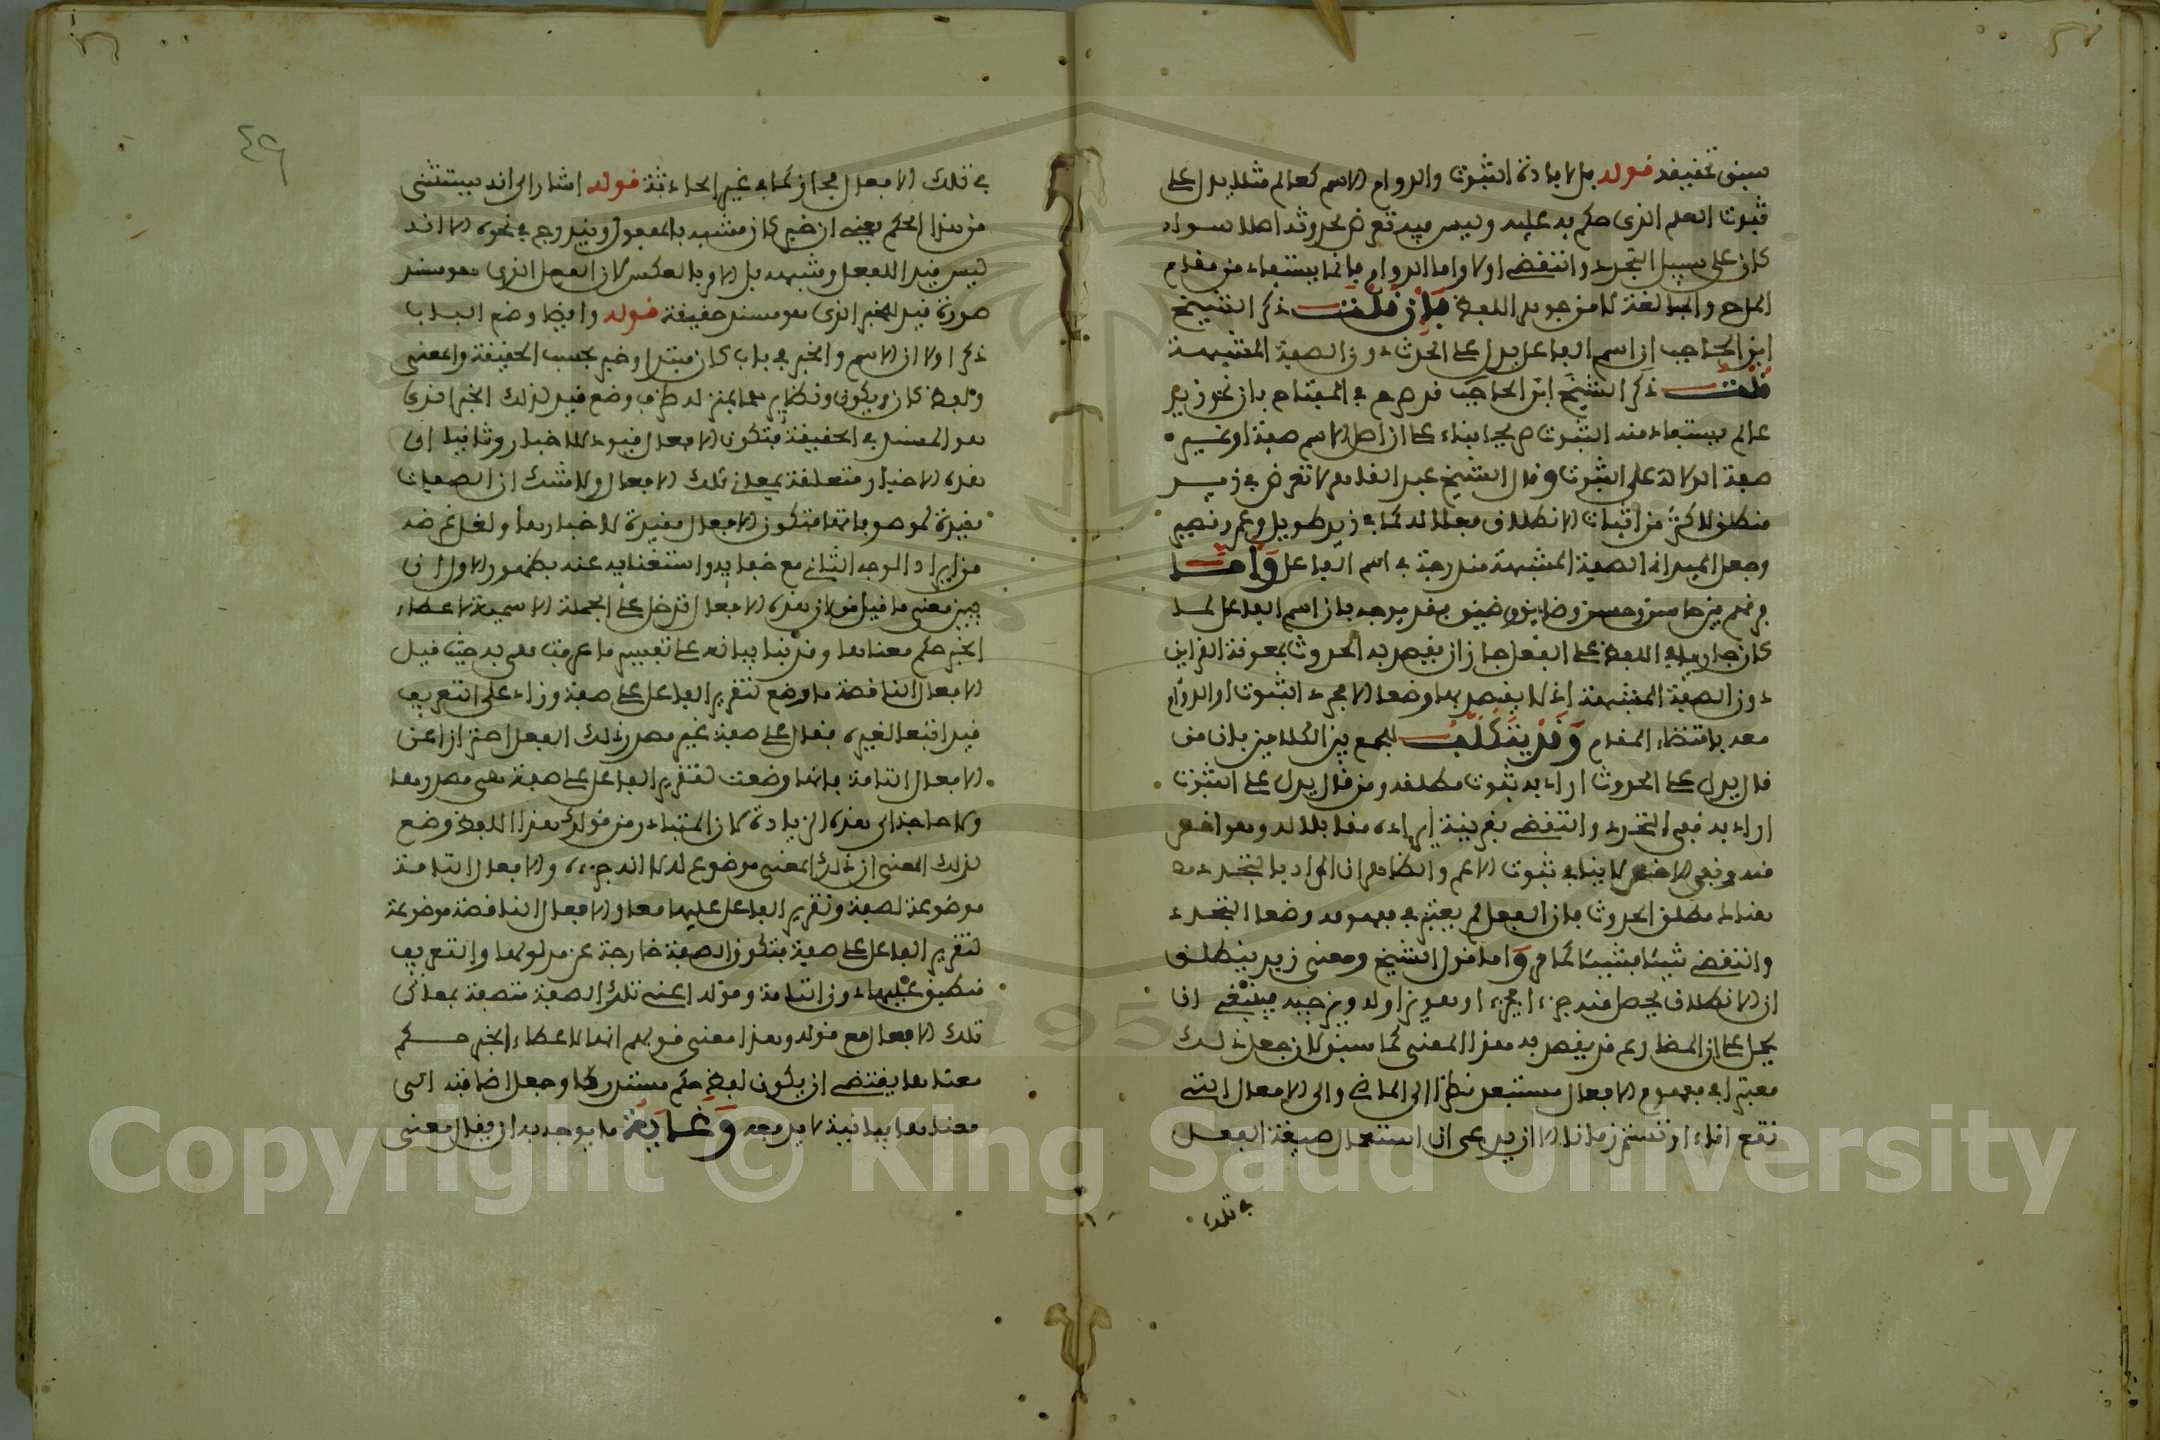 سبق تحقيقه قوله بل لافادة الثبوت والدوام الاسم كعالم مثلا يدل على
ثبوت العلم الذى حكم به عليه وليس فيه تعرض لحدوثه اصلا سواء
كان على سبيل التجدد والتقضى اولا واما الدوام فانما يستفاد من مقام
المدح والمبالغة لا من جوهر اللفظ فان قلت ذكر الشيخ
ابن الحاجب ان اسم الفاعل يدل على الحدث دون الصفة المشبهة
قلت ذكر الشيخ ابن الحاجب قد صرح فى المفتاح بان نحو زيد
عالم يستفاد منه الثبوت صريحا بناء على ان اصل الاسم صفة او غير
صفة الدلالة على الثبوت وقال الشيخ عبد القاهر لا تعرض فى زيد
منطلق لاكثر من اثبات الانطلاق فعلا له كما فى زيد طويل وعمرو قصير
وجعل الميدانى الصفة المشبهة مندرجة فى اسم الفاعل واما
فرقهم بين حاسن وحسن وضايق وضيق فقد يوجه بان اسم الفاعل لما
كان جاريا فى اللفظ على الفعل جاز ان يقصد به الحدوث بمعونة القراين
دون الصفة المشبهة اذ لا يقصد بها وضعا الا مجرد الثبوت او الدوام
معه باقتضاء المقام وقد يتكلف للجمع بين الكلامين بان من
قال يدل على الحدوث اراد به ثبوت مطلقه ومن قال يدل على الثبوت
اراد به نفى التجدد والتقضى بقرينة ايراده مقابلا له وهو اخص
منه ونفى الاخص لا ينافى ثبوت الاعم والظاهر ان المراد بالتجدد
معناه مطلق الحدوث فان الفعل لم يعتبر فى مفهومه وضعا التجدد
والتقضى شيئا فشيئا كما مر واما قول الشيخ ومعنى زيد ينطلق
ان الانطلاق يحصل منه جزءا فجزءا وهو يزاوله ويزجيه فينبغى ان
يحمل على ان المضارع قد يقصد به هذا المعنى كما سبق لان جعل ذلك
معتبرا فى مفهوم الافعال مستبعد نظرا الى الماضى والى الافعال التى
تقع انا او تستمر زمانا الا ان يدعى ان استعمال صيغة الفعل
فى تلك
٤٩
فى تلك الافعال مجاز كما فى غير الحادثة قوله اشار الى انه يستثنى
من هذا الحكم يعنى ان خبر كان مشبه بالمفعول ويندرج فى نحوه الا انه
ليس قيدا للفعل وشبهه بل الامر بالعكس لان الفعل الذى هو مسند
صورة قيد للخبر الذى هو مسند حقيقة قوله وايضا وضع الباب
ذكر اولا ان الاسم والخبر فى باب كان مبتدا وخبر بحسب الحقيقة والمعنى
ولفظ كان ويكون ونظايرهما بمنزلة ظرف وضع قيد لذلك الخبر الذى
هو المسند فى الحقيقة فتكون الافعال قيود للاخبار وثانيا ان
هذه الاخبار متعلقة بمعانى تلك الافعال ولا شك ان الصفات
مقيدة لموصوفاتها فتكون الافعال مقيدة للاخبار بها ولعل غرضه
من ايراد الوجه الثانى مع خفايه واستغنايه عنه بظهور الاول ان
يبين معنى ما قيل من ان هذه الافعال تدخل على الجملة الاسمية لاعطاء
الخبر حكم معناها وقد بنا بيانه على تفسير ما عرفت هى به حيث قيل
الافعال الناقصة ما وضع لتقرير الفاعل على صفة وزاد على التعريف
قيدا تبعا لغيره فقال على صفة غير مصدر ذلك الفعل احترازا عن
الافعال التامة فانها وضعت لتقرير الفاعل على صفة هى مصدرها
ولا حاجة الى هذه الزيادة لان المتبادر من قولك هذا اللفظ وضع
لذلك المعنى ان ذلك المعنى موضوع له لا انه جزءه والافعال التامة
موضوعة لصفة وتقرير الفاعل عليها معا والافعال الناقصة موضوعة
لتقرير الفاعل على صفة فتكون الصفة خارجة عن مدلولها والتعريف
منطبق عليها دون التامة وقوله اعنى تلك الصفة متصفة بمعانى
تلك الافعال مع قوله وهذا معنى قولهم انها لاعطاء الخبر حكم
معناها يقتضى ان يكون لفظ حكم مستدركا وجعل اضافته الى
معناها بيانية لا يدفعه وغاية ما يوجه به ان يقال معنى